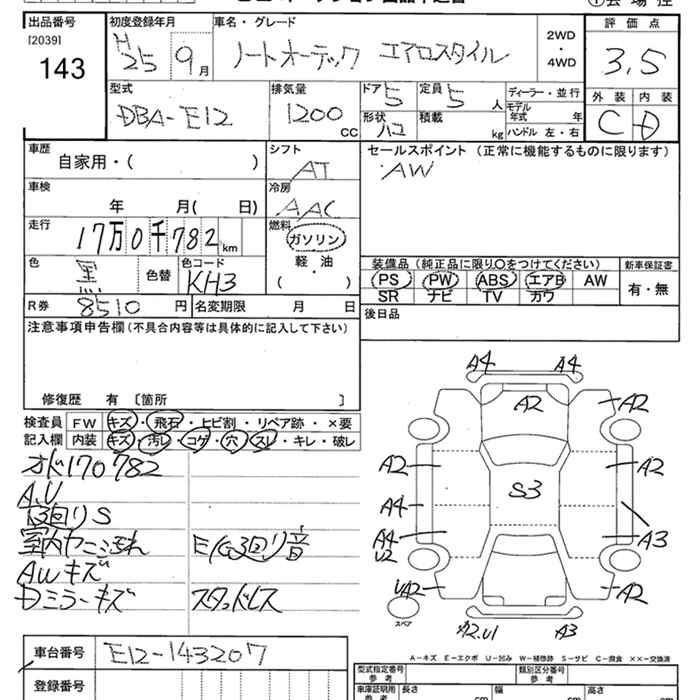 出品番号
[2039]
143
初度登録年月
H25 9月
車名・グレード
ノートオーテック エアロスタイル
2WD
・
4WD
評価点
3.5
型式
DBA-E12
排気量
1200 cc
ドア 5
定員 5 人
形状 ハコ
積載 kg
ディーラー・並行
モデル年式 年
ハンドル 左・右
外装 内装
C D
車歴
自家用・( )
シフト
AT
セールスポイント (正常に機能するものに限ります)
AW
車検
年 月( 日)
冷房
AAC
走行
17万0千782km
燃料
ガソリン
軽・油
( )
色
黒
色替
色コード
KH3
装備品 (純正品に限り○をつけてください)
新車保証書
PS PW ABS エアB AW
SR ナビ TV カワ
有・無
R券 8510 円
名変期限 月 日
後日品
注意事項申告欄 (不具合内容等は具体的に記入して下さい)
修復歴 有 〔箇所 〕
検査員記入欄
FW キズ・飛石・ヒビ割・リペア跡・×要
内装 キズ・汚レ・コゲ・穴・スレ・キレ・破レ
オド170782
A.U
13回りS
室内ヤニ汚れ
E/G回り音
AWキズ
Dミラーキズ
スタッドレス
A4 A4
A2 A2
A2 A2
S3
A4
A4
U2
A3
A2
A2
スペア
A2.U1 A3
A-キズ E-エクボ U-凹み W-補修跡 S-サビ C-腐食 ××-交換済
車台番号 E12-143207
登録番号
型式指定番号
参考
類別区分番号
参考
車庫証明用
参考
長さ cm
幅 cm
高さ cm